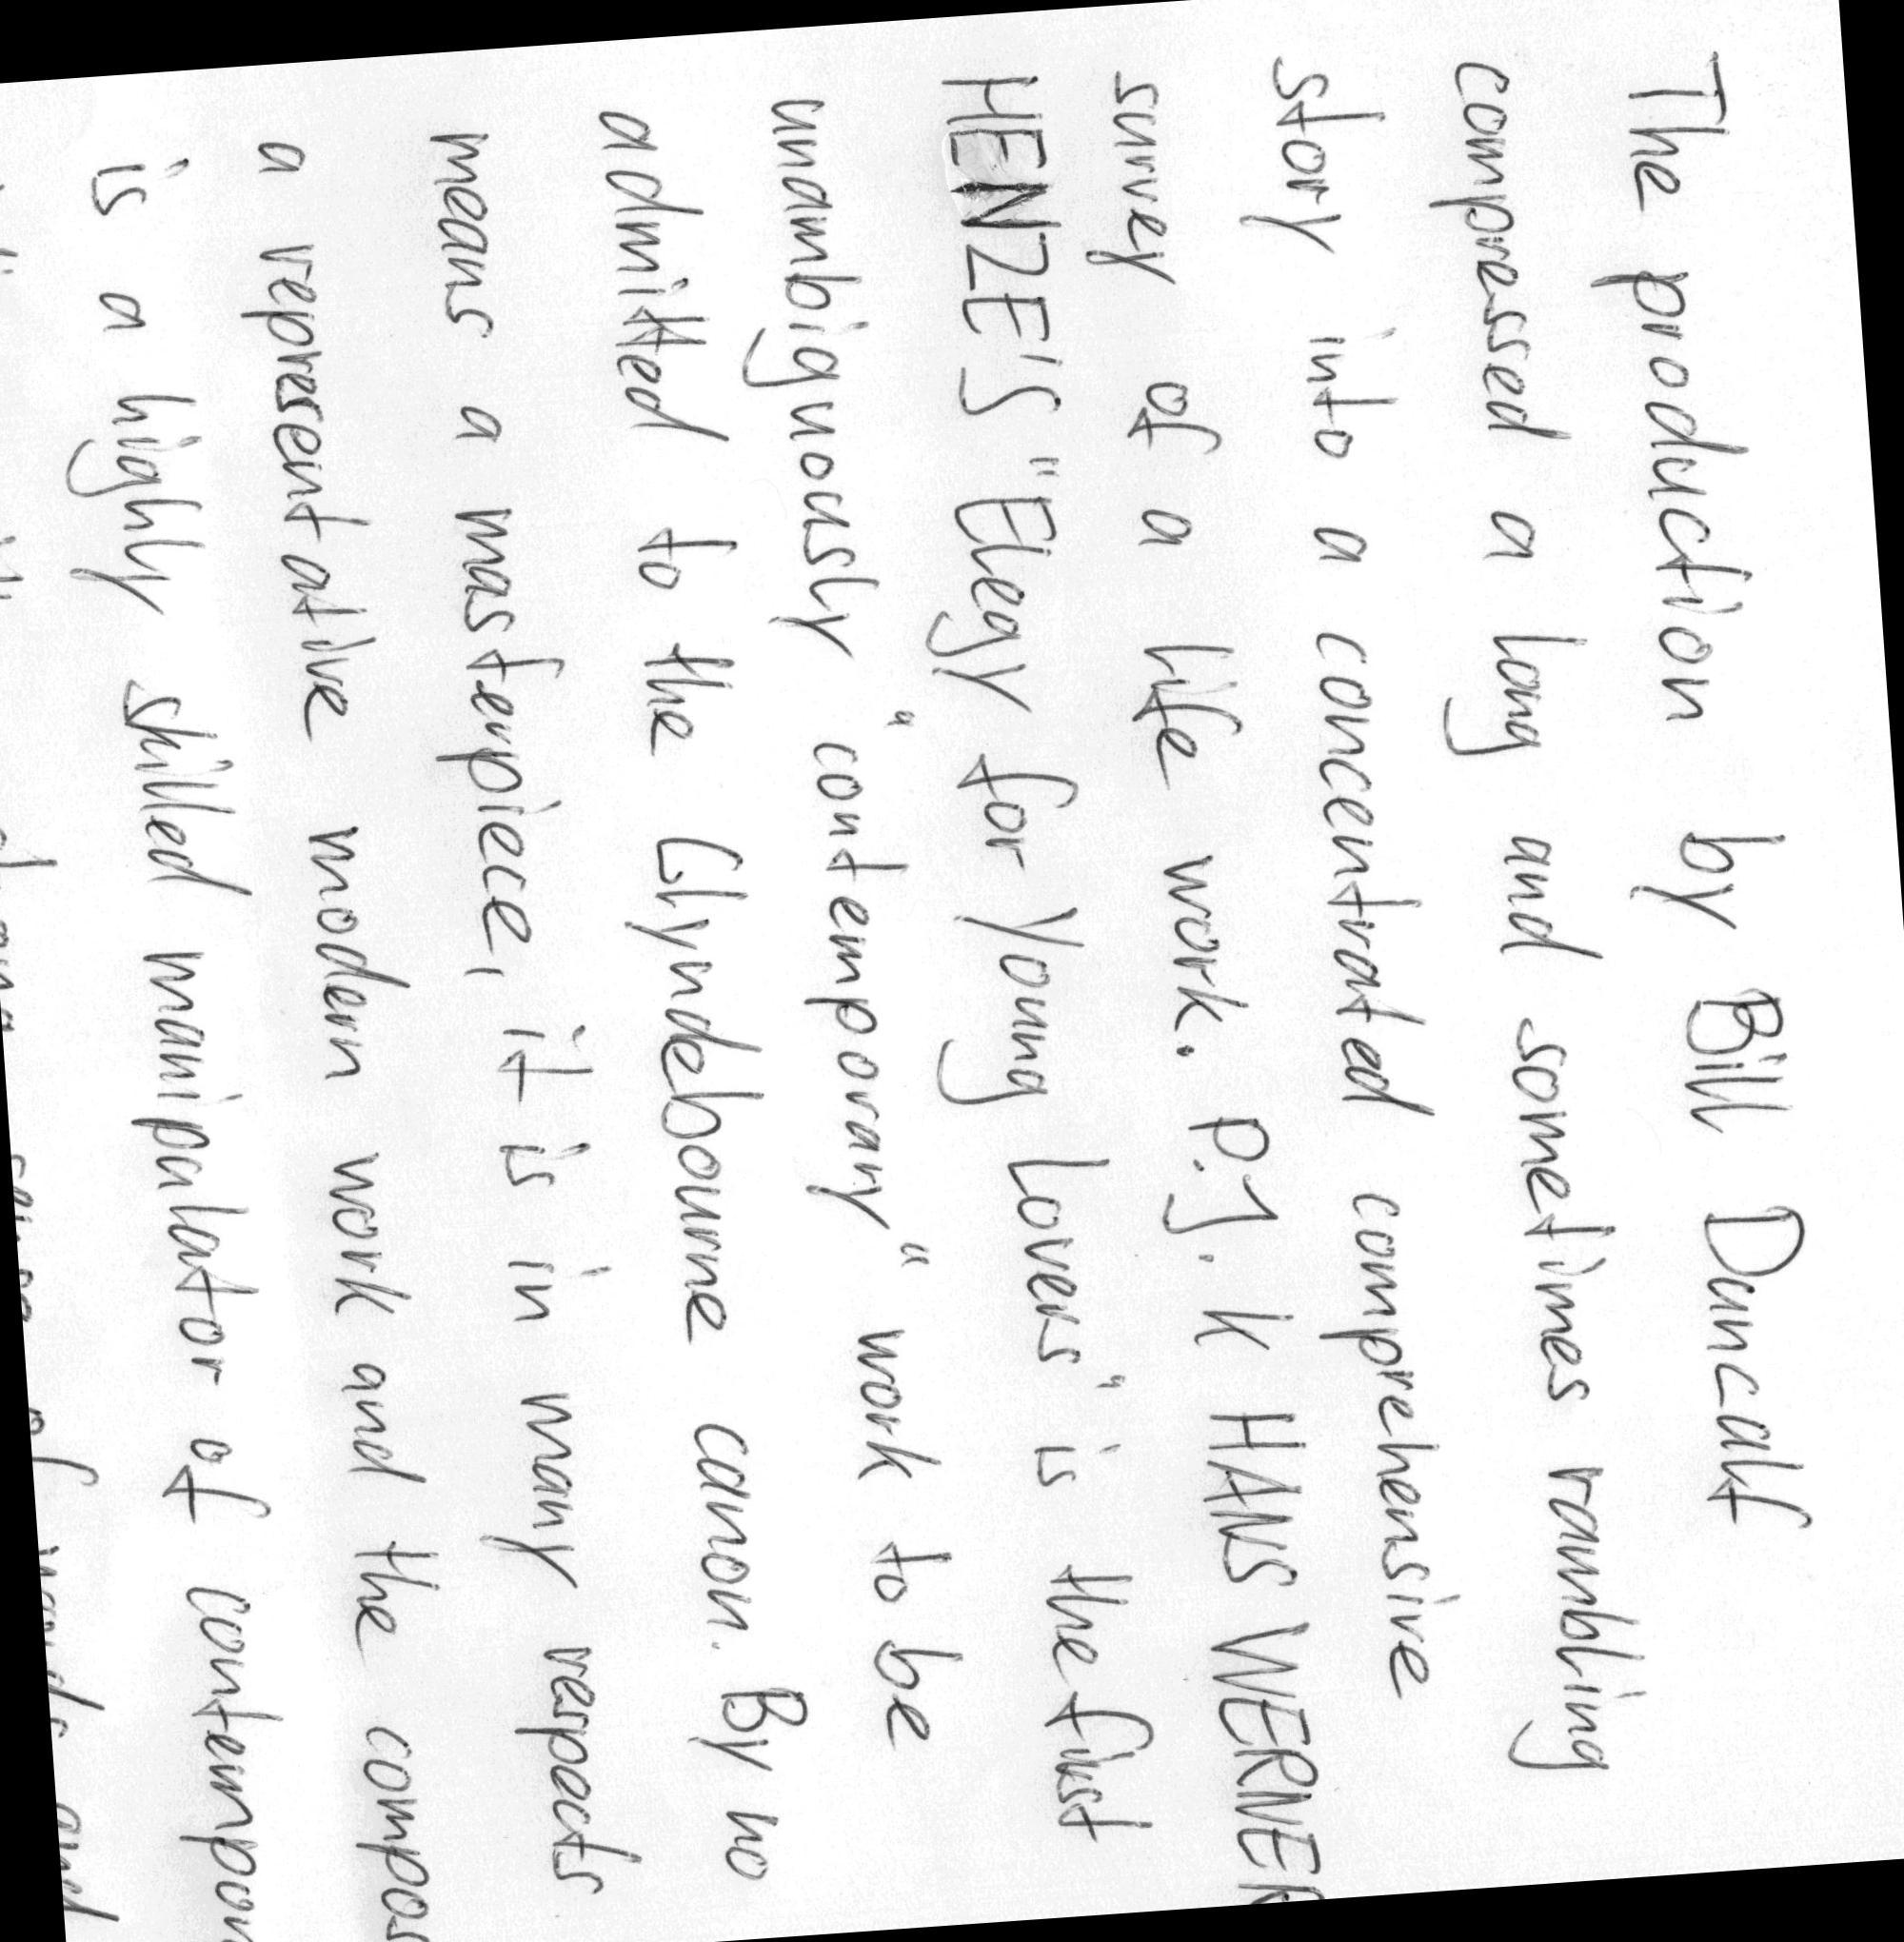 The production by Bill Duncalf
compressed a long and sometimes rambling
story into a concentrated comprehensive
survey of a life work. P.J.K HANS WERNER
HENZE'S "Elegy for Young Lovers" is the first
unambiguously "contemporary" work to be
admitted to the Glyndebourne canon. By no
means a masterpiece, it is in many respects
a representative modern work and the compos
is a highly skilled manipulator of contempor
of words and